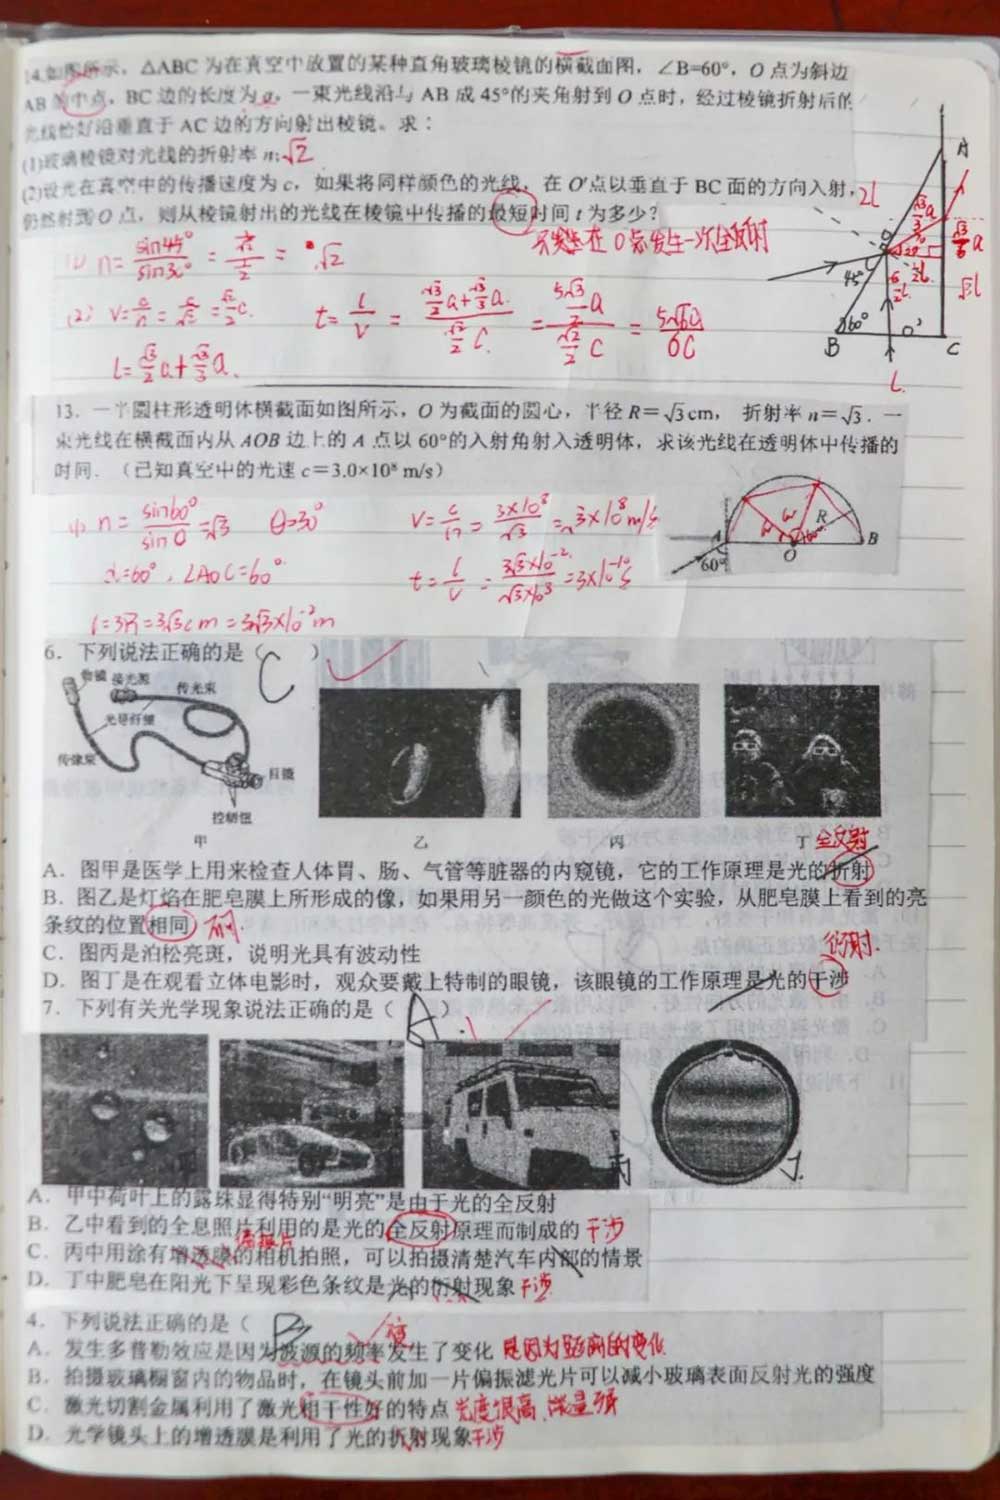 14.如图所示，△ABC 为在真空中放置的某种直角玻璃棱镜的横截面图，∠B=60°，O 点为斜边
AB 的中点，BC 边的长度为 a。一束光线沿与 AB 成 45°的夹角射到 O 点时，经过棱镜折射后的
光线恰好沿垂直于 AC 边的方向射出棱镜。求：
(1)玻璃棱镜对光线的折射率 n; √2
(2)设光在真空中的传播速度为 c，如果将同样颜色的光线，在 O′点以垂直于 BC 面的方向入射，
仍然射到 O 点，则从棱镜射出的光线在棱镜中传播的最短时间 t 为多少？
在 O点发生一次全反射
(1) n= sin45°/sin30° = = √2
(2) V= c/n = c/√2 = √2/2 c.
t= l/v = (√3/2 a+√3/3 a)/(√2/2 c) = =
l= √3/2 a+ √3/3 a.
A
2l
O
45°
60°
B O′ C
√3l
L
13. 一半圆柱形透明体横截面如图所示，O 为截面的圆心，半径 R=√3cm， 折射率 n=√3. 一
束光线在横截面内从 AOB 边上的 A 点以 60°的入射角射入透明体，求该光线在透明体中传播的
时间. （已知真空中的光速 c=3.0×10⁸ m/s）
(1) n= sin60°/sinθ =√3 θ=30°
∠AOC=60°
l=3R=3√3cm=3√3×10⁻²m
V= c/n = 3×10⁸/√3 = √3×10⁸m/s
t= l/v = 3√3×10⁻²/√3×10⁸ =3×10⁻¹⁰s
A 60° O R B
6. 下列说法正确的是（C ）
物镜 接光源 传光束
光导纤维
传像束
目镜
控制钮
甲 乙 丙 丁
全反射
A. 图甲是医学上用来检查人体胃、肠、气管等脏器的内窥镜，它的工作原理是光的折射
B. 图乙是灯焰在肥皂膜上所形成的像，如果用另一颜色的光做这个实验，从肥皂膜上看到的亮
条纹的位置相同
C. 图丙是泊松亮斑，说明光具有波动性
衍射.
D. 图丁是在观看立体电影时，观众要戴上特制的眼镜，该眼镜的工作原理是光的干涉
7. 下列有关光学现象说法正确的是（ A. ）
丙
丁.
A. 甲中荷叶上的露珠显得特别“明亮”是由于光的全反射
B. 乙中看到的全息照片利用的是光的全反射原理而制成的 干涉
偏振片
C. 丙中用涂有增透膜的相机拍照，可以拍摄清楚汽车内部的情景
D. 丁中肥皂在阳光下呈现彩色条纹是光的衍射现象 干涉
4. 下列说法正确的是（ B
A. 发生多普勒效应是因为波源的频率发生了变化 是因为距离的变化
B. 拍摄玻璃橱窗内的物品时，在镜头前加一片偏振滤光片可以减小玻璃表面反射光的强度
C. 激光切割金属利用了激光相干性好的特点 亮度很高、能量强
D. 光学镜头上的增透膜是利用了光的折射现象 干涉